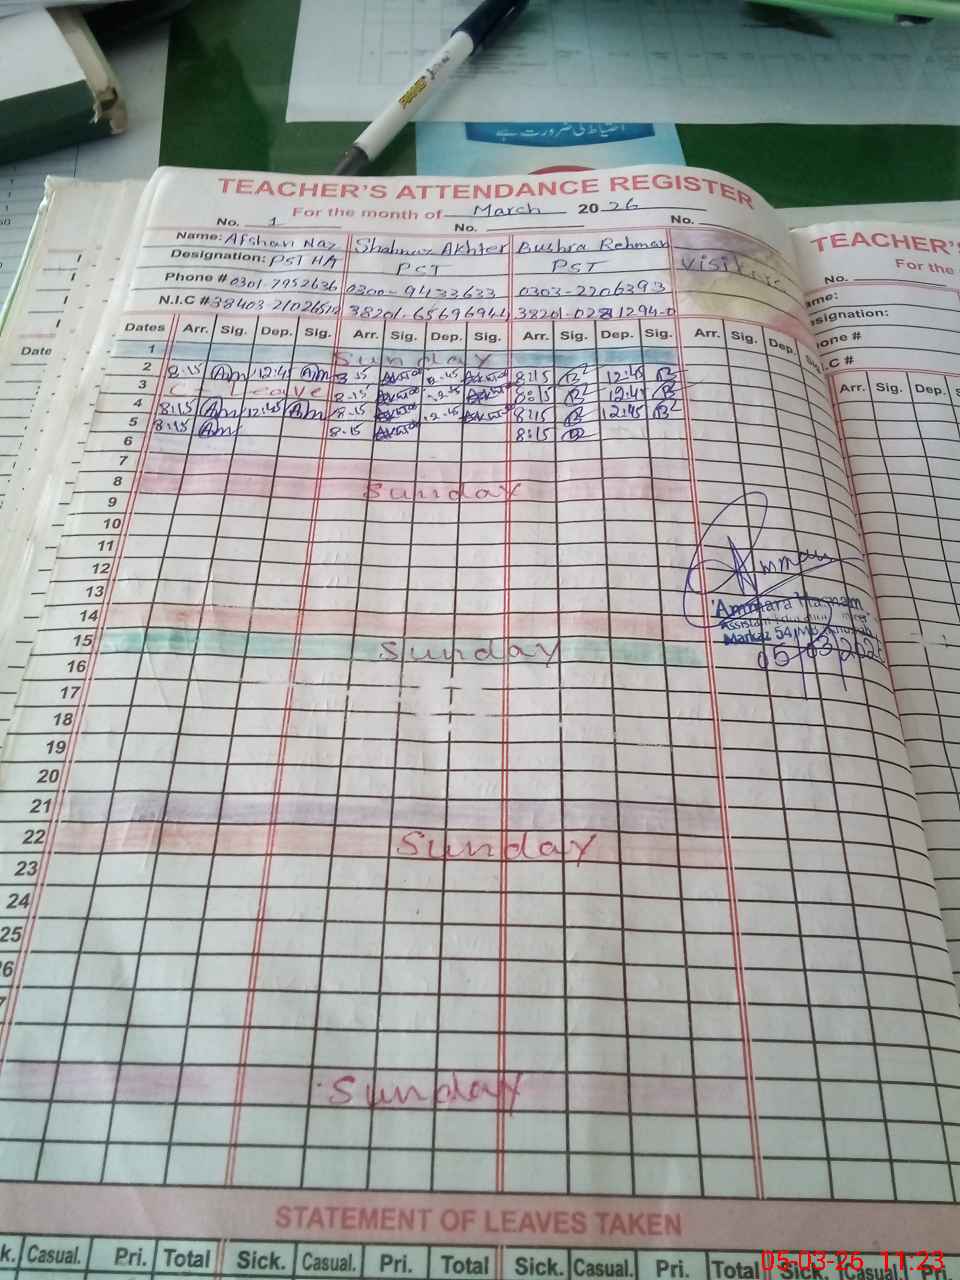 احتیاط کی ضرورت ہے
TEACHER'S ATTENDANCE REGISTER
For the month of March 2026
No. 1 No. No.
Name: Afshan Naz Shahnaz Akhter Bushra Rehman
Designation: PST HA PST PST
Phone # 0301-7952636 0300-9433633 0303-2206393
N.I.C #
Dates Arr. Sig. Dep. Sig. Arr. Sig. Dep. Sig. Arr. Sig. Dep. Sig. Arr. Sig. Dep.
1 Sunday
2 8:15 Am 12:45 Am 8:15 12:45 8:15 12:45
3 Leave 8:15 12:45 8:15 12:45
4 8:15 Am 12:45 Am 8:15 12:45 8:15 12:45
5 8:15 Am 8:15 8:15
6
7
8 Sunday
9
10
11
12
13
14
15 Sunday
16
17
18
19
20
21
22 Sunday
23
24
25
Sunday
Ammara
Markaz 54
05/03/202
STATEMENT OF LEAVES TAKEN
Casual. Pri. Total Sick. Casual. Pri. Total Sick. Casual. Pri. Total Sick. Casual. Pri.
TEACHER'S
For the
No.
Name:
Designation:
Phone #
N.I.C #
Arr. Sig. Dep.
Date
05-03-26 11:23